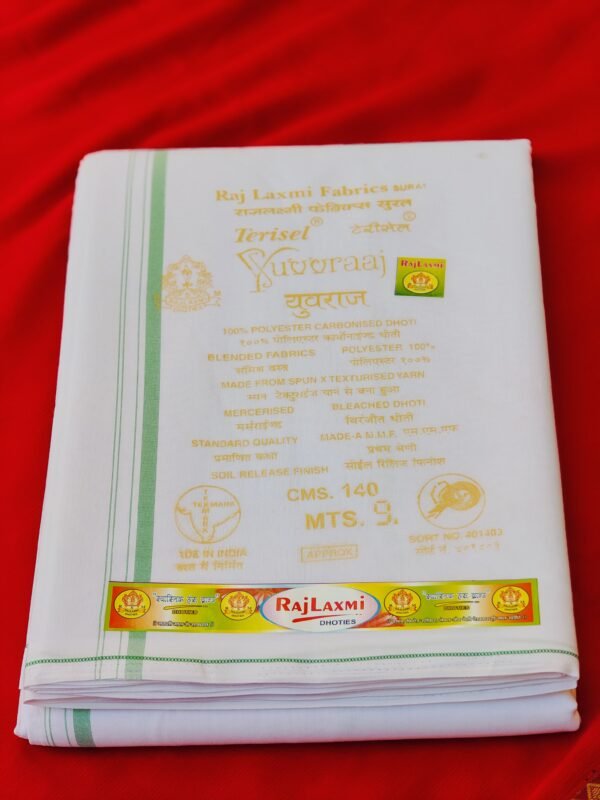 Raj Laxmi Fabrics SURAT
राजलक्ष्मी फेब्रिक्स सुरत
Terisel® टेरीसेल®
Yuvvraaj
RAJLAXMI
युवराज
100% POLYESTER CARBONISED DHOTI
१००% पोलिएस्टर कार्बोनाईज्ड धोती
BLENDED FABRICS POLYESTER 100%
पोलिएस्टर १००%
MADE FROM SPUN X TEXTURISED YARN
से बना हुआ
MERCERISED BLEACHED DHOTI
धोती
STANDARD QUALITY MADE-A M.M.F. एम.एम.एफ
प्रमाणित कक्षा प्रथम श्रेणी
SOIL RELEASE FINISH सोईल रिलिज फिनीश
CMS. 140
TEXMARK
MTS. 9.
SORT NO. 401403
IN INDIA
में निर्मित
APPROX
RAJLAXMI
DHOTIES
DHOTIES
DHOTIES